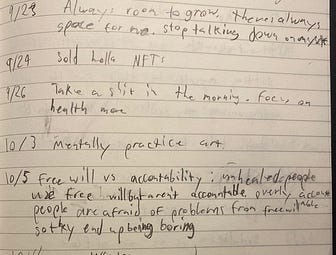 9/23 Always room to grow. theres always
space for me. stop talking down on myself
9/24 Sold holla NFTs
9/26 Take a shit in the morning. focus on
health more
10/3 mentally practice art.
10/5 free will vs accountability: unhealed people
use free will but arent accountable. overly accountable
people are afraid of problems from freewill
so they end up being boring